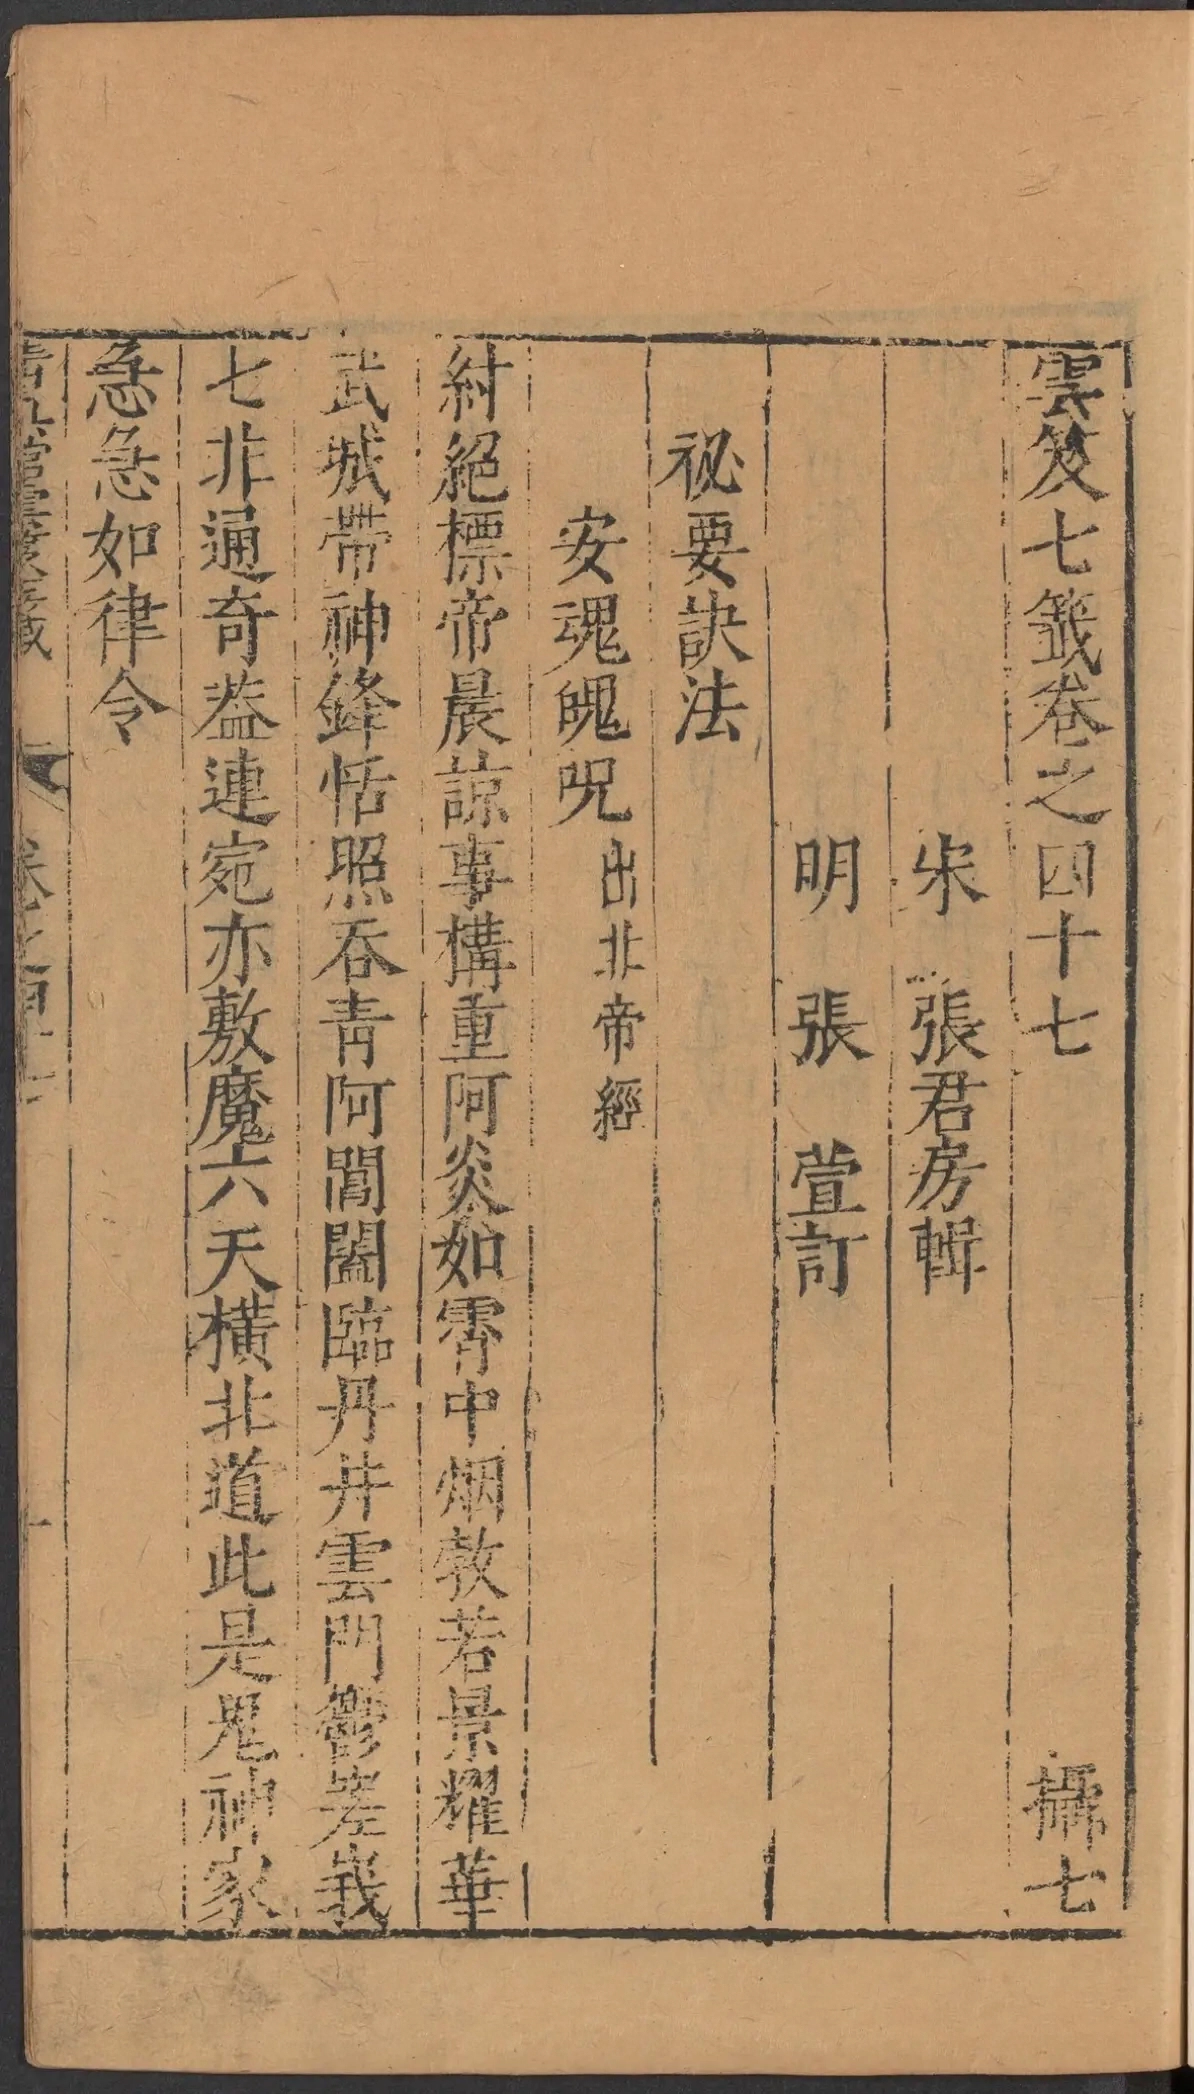 雲笈七籤卷之四十七　攝七
宋　張君房輯
明　張　萱訂
祕要訣法
安魂魄呪出北帝經
紂絕標帝晨諒事構重阿炎如霄中烟敦若景耀華
武城帶神鋒恬照吞青阿閶闔臨丹井雲門鬱嵳峩
七非通奇蓋連宛亦敷魔六天橫北道此是鬼神家
急急如律令